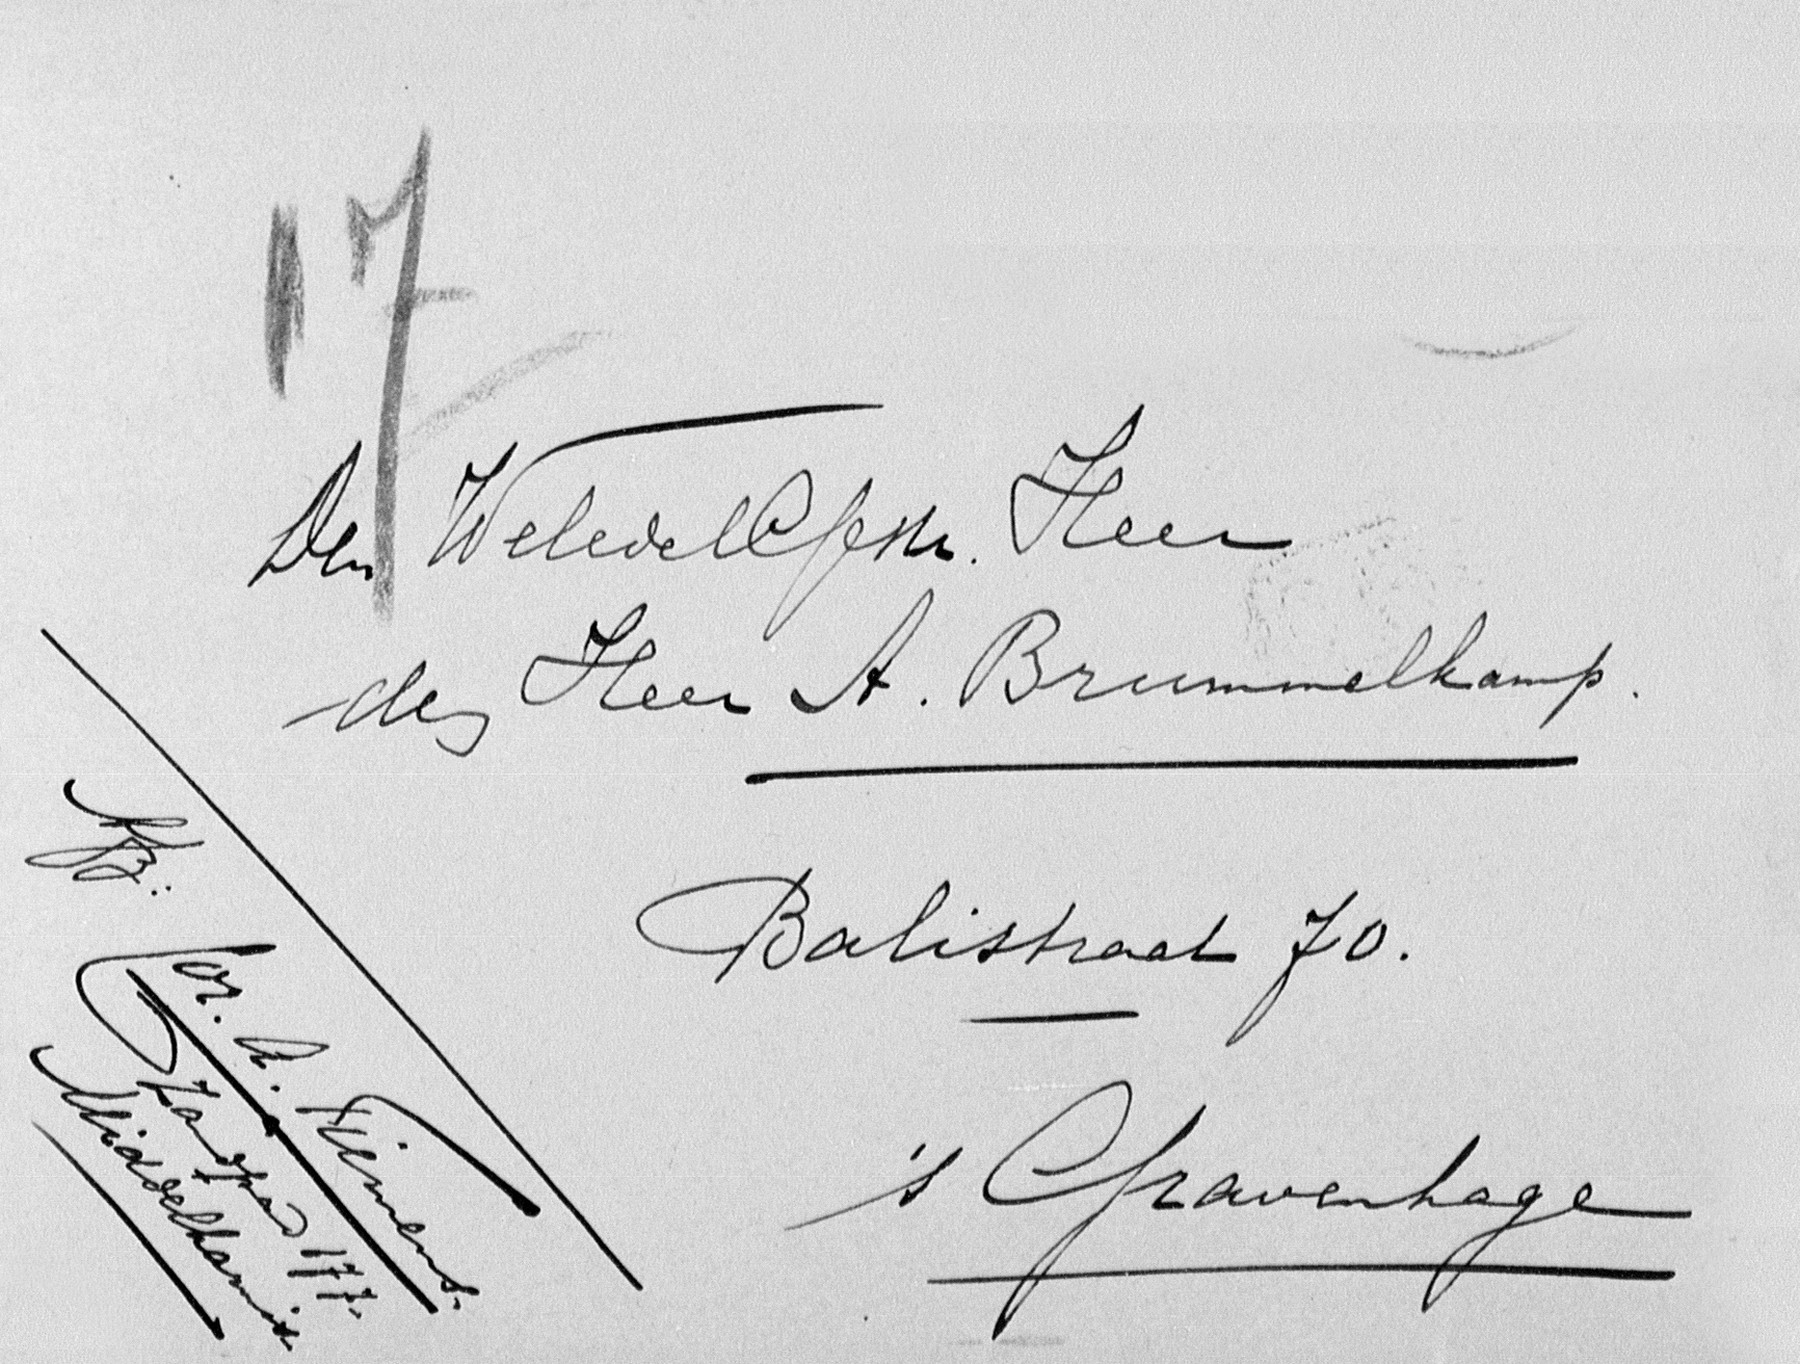 17
Den WeledelGestr. Heer
den Heer A. Brummelkamp.
Balistraat 70.
's Gravenhage
Afz:
Zandpad 177.
Middelharnis